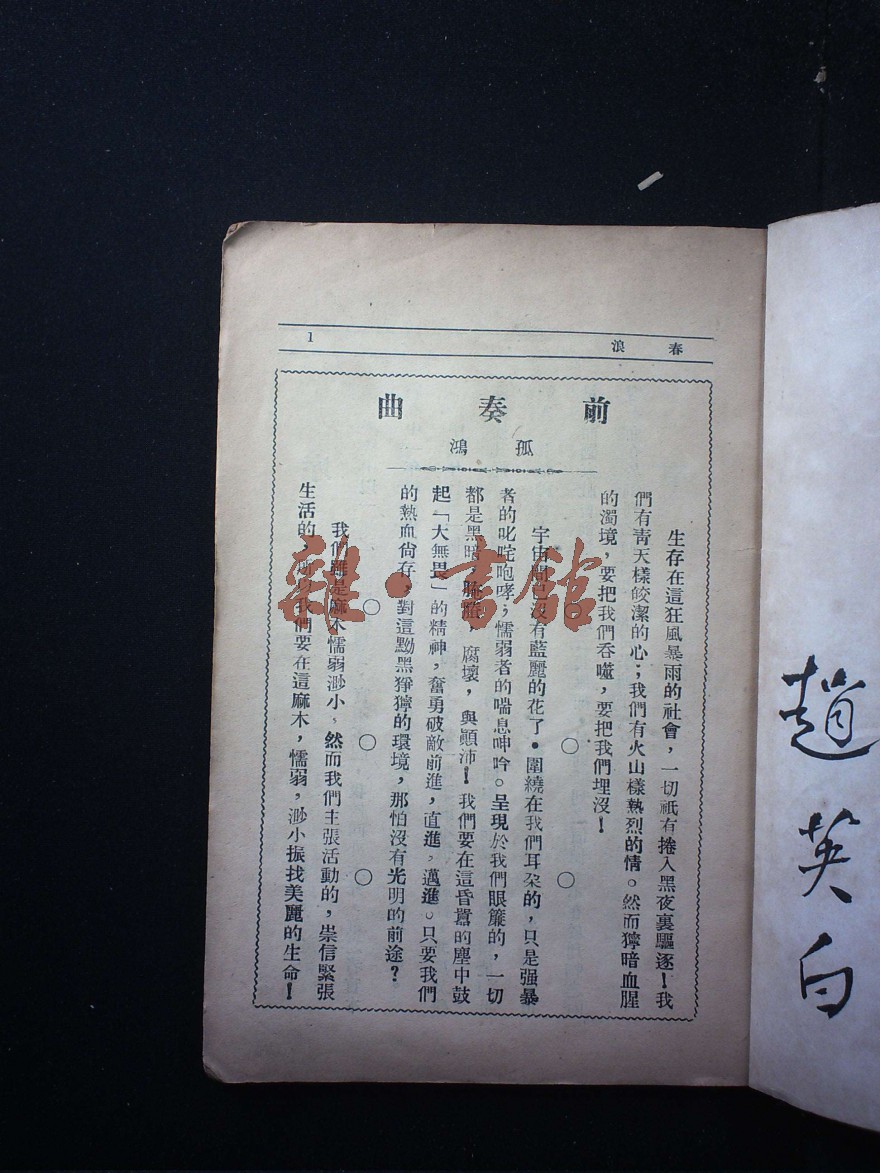 春浪
1
前奏曲
孤鴻
生存在這狂風暴雨的社會，一切祇有捲入黑夜裏驅逐！我
們有青天樣皎潔的心；我們有火山樣熱烈的情。然而獰暗血腥
的濁境，要把我們吞噬，要把我們埋沒！
○○○
宇宙間已沒有藍麗的花了。圍繞在我們耳朶的，只是强暴
者的叱咤咆哮；懦弱者的喘息呻吟。呈現於我們眼簾的，一切
都是黑暗，腌臢，腐壞，與顚沛！我們要在這昏囂的塵中鼓
起「大無畏」的精神，奮勇破敵前進，直進，邁進。只要我們
的熱血尙存，對這黝黑猙獰的環境，那怕沒有光明的前途？
○○○
我們雖是麻木懦弱渺小，然而我們主張活動的，崇信緊張
生活的，所以我們要在這麻木，懦弱，渺小振找美麗的生命！
雜·書館
趙英白